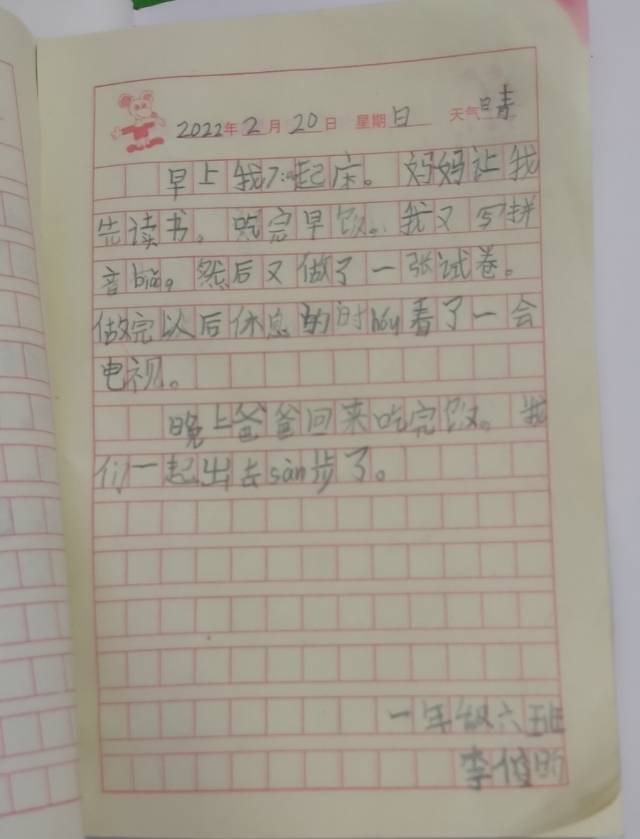 2022年2月20日 星期日 天气晴
早上我7:起床。妈妈让我
先读书。吃完早饭。我又写拼
音biāo。然后又做了一张试卷。
做完以后休息的时hòu看了一会
电视。
晚上爸爸回来吃完饭。我
们一起出去sàn步了。
一年级六班
李